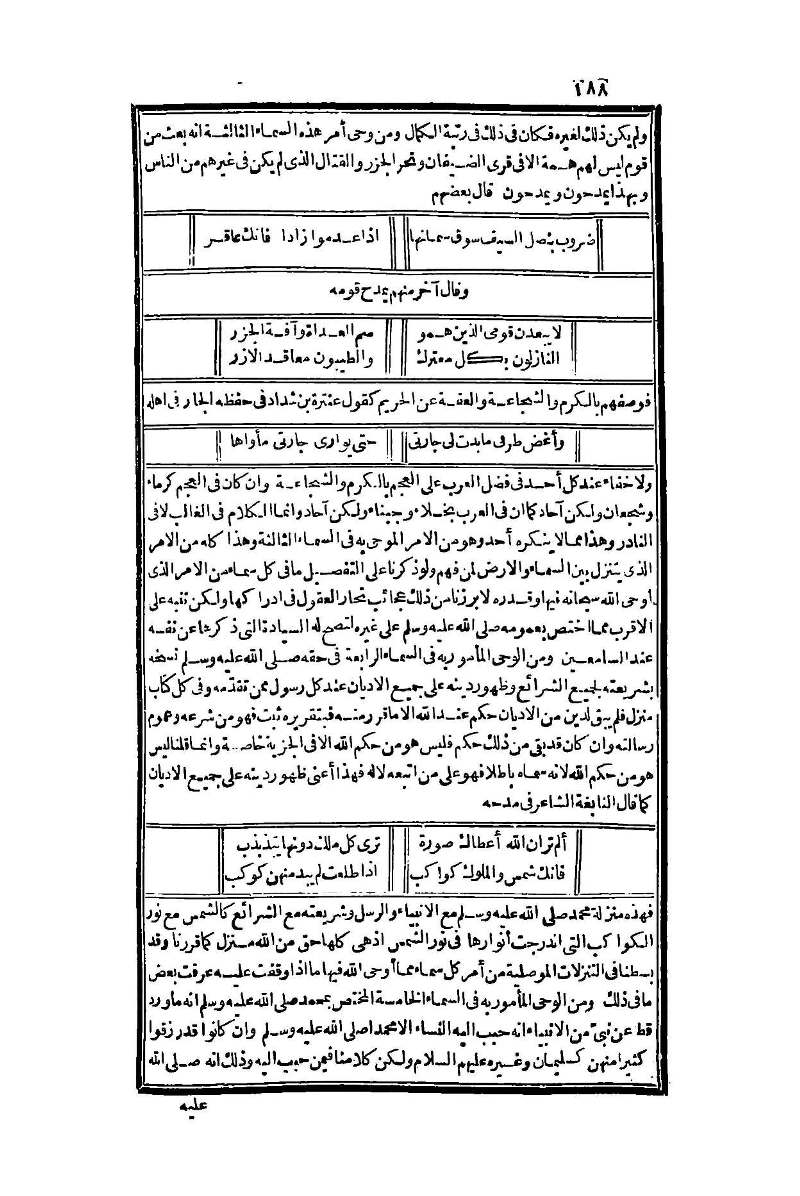 ٢٨٨
ولم يكن ذلك لغيره فكان في ذلك في رتبة الكمال ومن وحى أمر هذه السماء الثالثة انه بعث من
قوم ليس لهم همة الا في قرى الضيفان ونحر الجزر والقتال الذي لم يكن في غيرهم من الناس
وبهذا يمدحون ويمدحون قال بعضهم
ضروب بنصل السيف سوق سمانها اذا عدموا زادا فانك عاقر
وقال آخر منهم يمدح قومه
لا يبعدن قومي الذين همو سم العداة وآفة الجزر
النازلون بكل معترك والطيبون معاقد الازر
فوصفهم بالكرم والشجاعة والعفة عن الحريم كقول عنترة بن شداد في حفظه الجار في اهله
وأغض طرفي ما بدت لي جارتي حتى يوارى جارتي مأواها
ولا خفاء عند كل أحد في فضل العرب على العجم بالكرم والشجاعة وان كان في العجم كرماء
وشجعان ولكن آحاد كما ان في العرب بخلاء وجبناء ولكن آحاد وانما الكلام في الغالب لا في
النادر وهذا مما لا ينكره أحد وهو من الامر الموحى به في السماء الثالثة وهذا كله من الامر
الذي يتنزل بين السماء والارض لمن فهم ولو ذكرنا على التفصيل ما في كل سماء من الامر الذي
أوحى الله سبحانه فيها وقدره لابرزنا من ذلك عجائب تحار العقول في ادراكها ولكن تنبه على
الاقرب مما اختص بعمومه صلى الله عليه وسلم على غيره لتصح له السيادة التي ذكرها عن نفسه
عند السامعين ومن الوحى المأمور به في السماء الرابعة في حقه صلى الله عليه وسلم نسخه
بشريعته لجميع الشرائع وظهور دينه على جميع الاديان عند كل رسول ممن تقدمه وفي كل كتاب
منزل فلم يبق لدين من الاديان حكم عند الله الا ما قرر منه فبتقريره ثبت فهو من شرعه وعموم
رسالته وان كان قد بقي من ذلك حكم فليس هو من حكم الله الا في الجزية خاصة وانما قلنا ليس
هو من حكم الله لانه سماه باطلا فهو على من اتبعه لا له فهذا أعنى ظهور دينه على جميع الاديان
كما قال النابغة الشاعر في مدحه
ألم تر ان الله أعطاك صورة ترى كل ملك دونها يتذبذب
فانك شمس والملوك كواكب اذا طلعت لم يبد منهن كوكب
فهذه منزلة محمد صلى الله عليه وسلم مع الانبياء والرسل وشريعته مع الشرائع كالشمس مع نور
الكواكب التي اندرجت أنوارها في نور الشمس اذ هي كلها حق من الله منزل كما قررنا وقد
بسطنا في التنزلات الموصلية من أمر كل سماء مما أوحى الله فيها ما اذا وقفت عليه عرفت بعض
ما في ذلك ومن الوحى المأمور به في السماء الخامسة المختص بمحمد صلى الله عليه وسلم انه ما ورد
قط عن نبيّ من الانبياء انه حبب اليه النساء الا محمدا صلى الله عليه وسلم وان كانوا قد رزقوا
كثيرا منهن كسليمان وغيره عليهم السلام ولكن كلامنا فيمن حبب اليه وذلك انه صلى الله
عليه